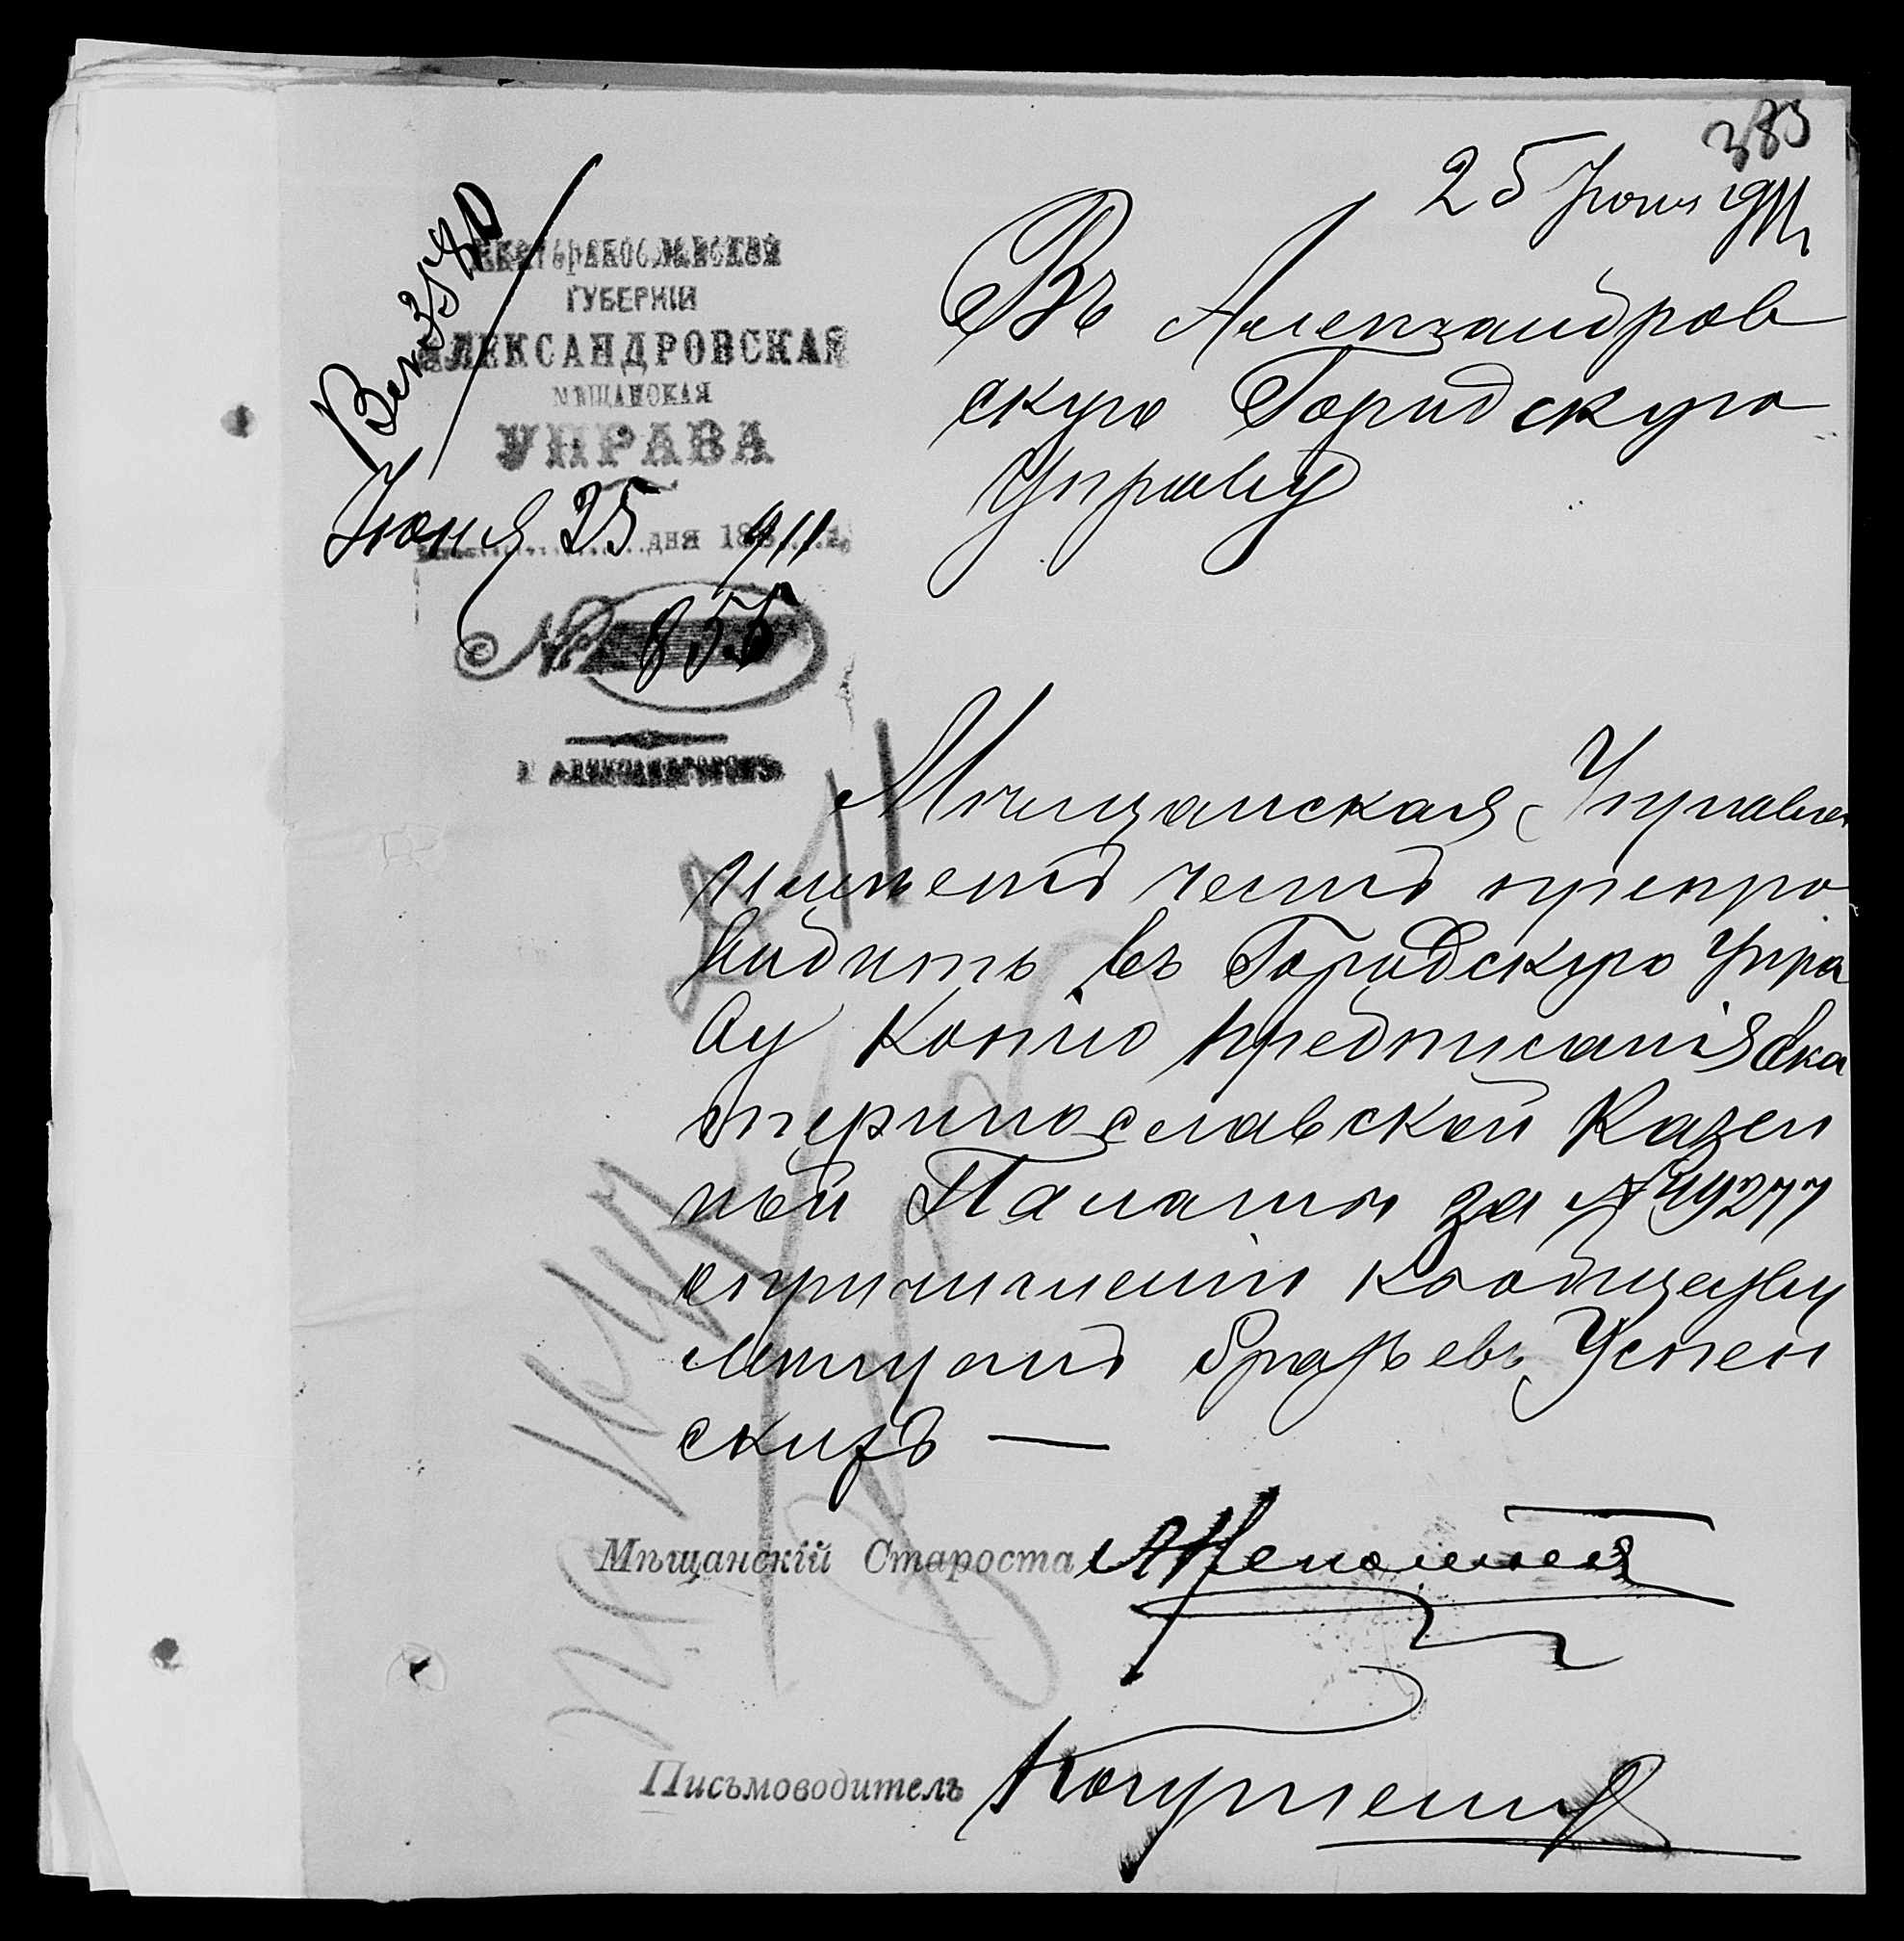 383
25 Июня 1911
Вх 3580
ЕКАТЕРИНОСЛАВСКОЙ
ГУБЕРНІИ
АЛЕКСАНДРОВСКАЯ
МѢЩАНСКАЯ
УПРАВА
Июня 25 дня 1911 г.
№ 855
Г. АЛЕКСАНДРОВСКЪ
Въ Александров
скую Городскую
Управу
Мѣщанская Управа
имѣетъ честь препро
водить въ Городскую Упра
ву Копію предписанія Ека
теринославской Казен
ной Палаты за №
о причисленіи къ обществу
мѣщанъ братьевъ Успен
скихъ —
Мѣщанскій Староста
Письмоводитель